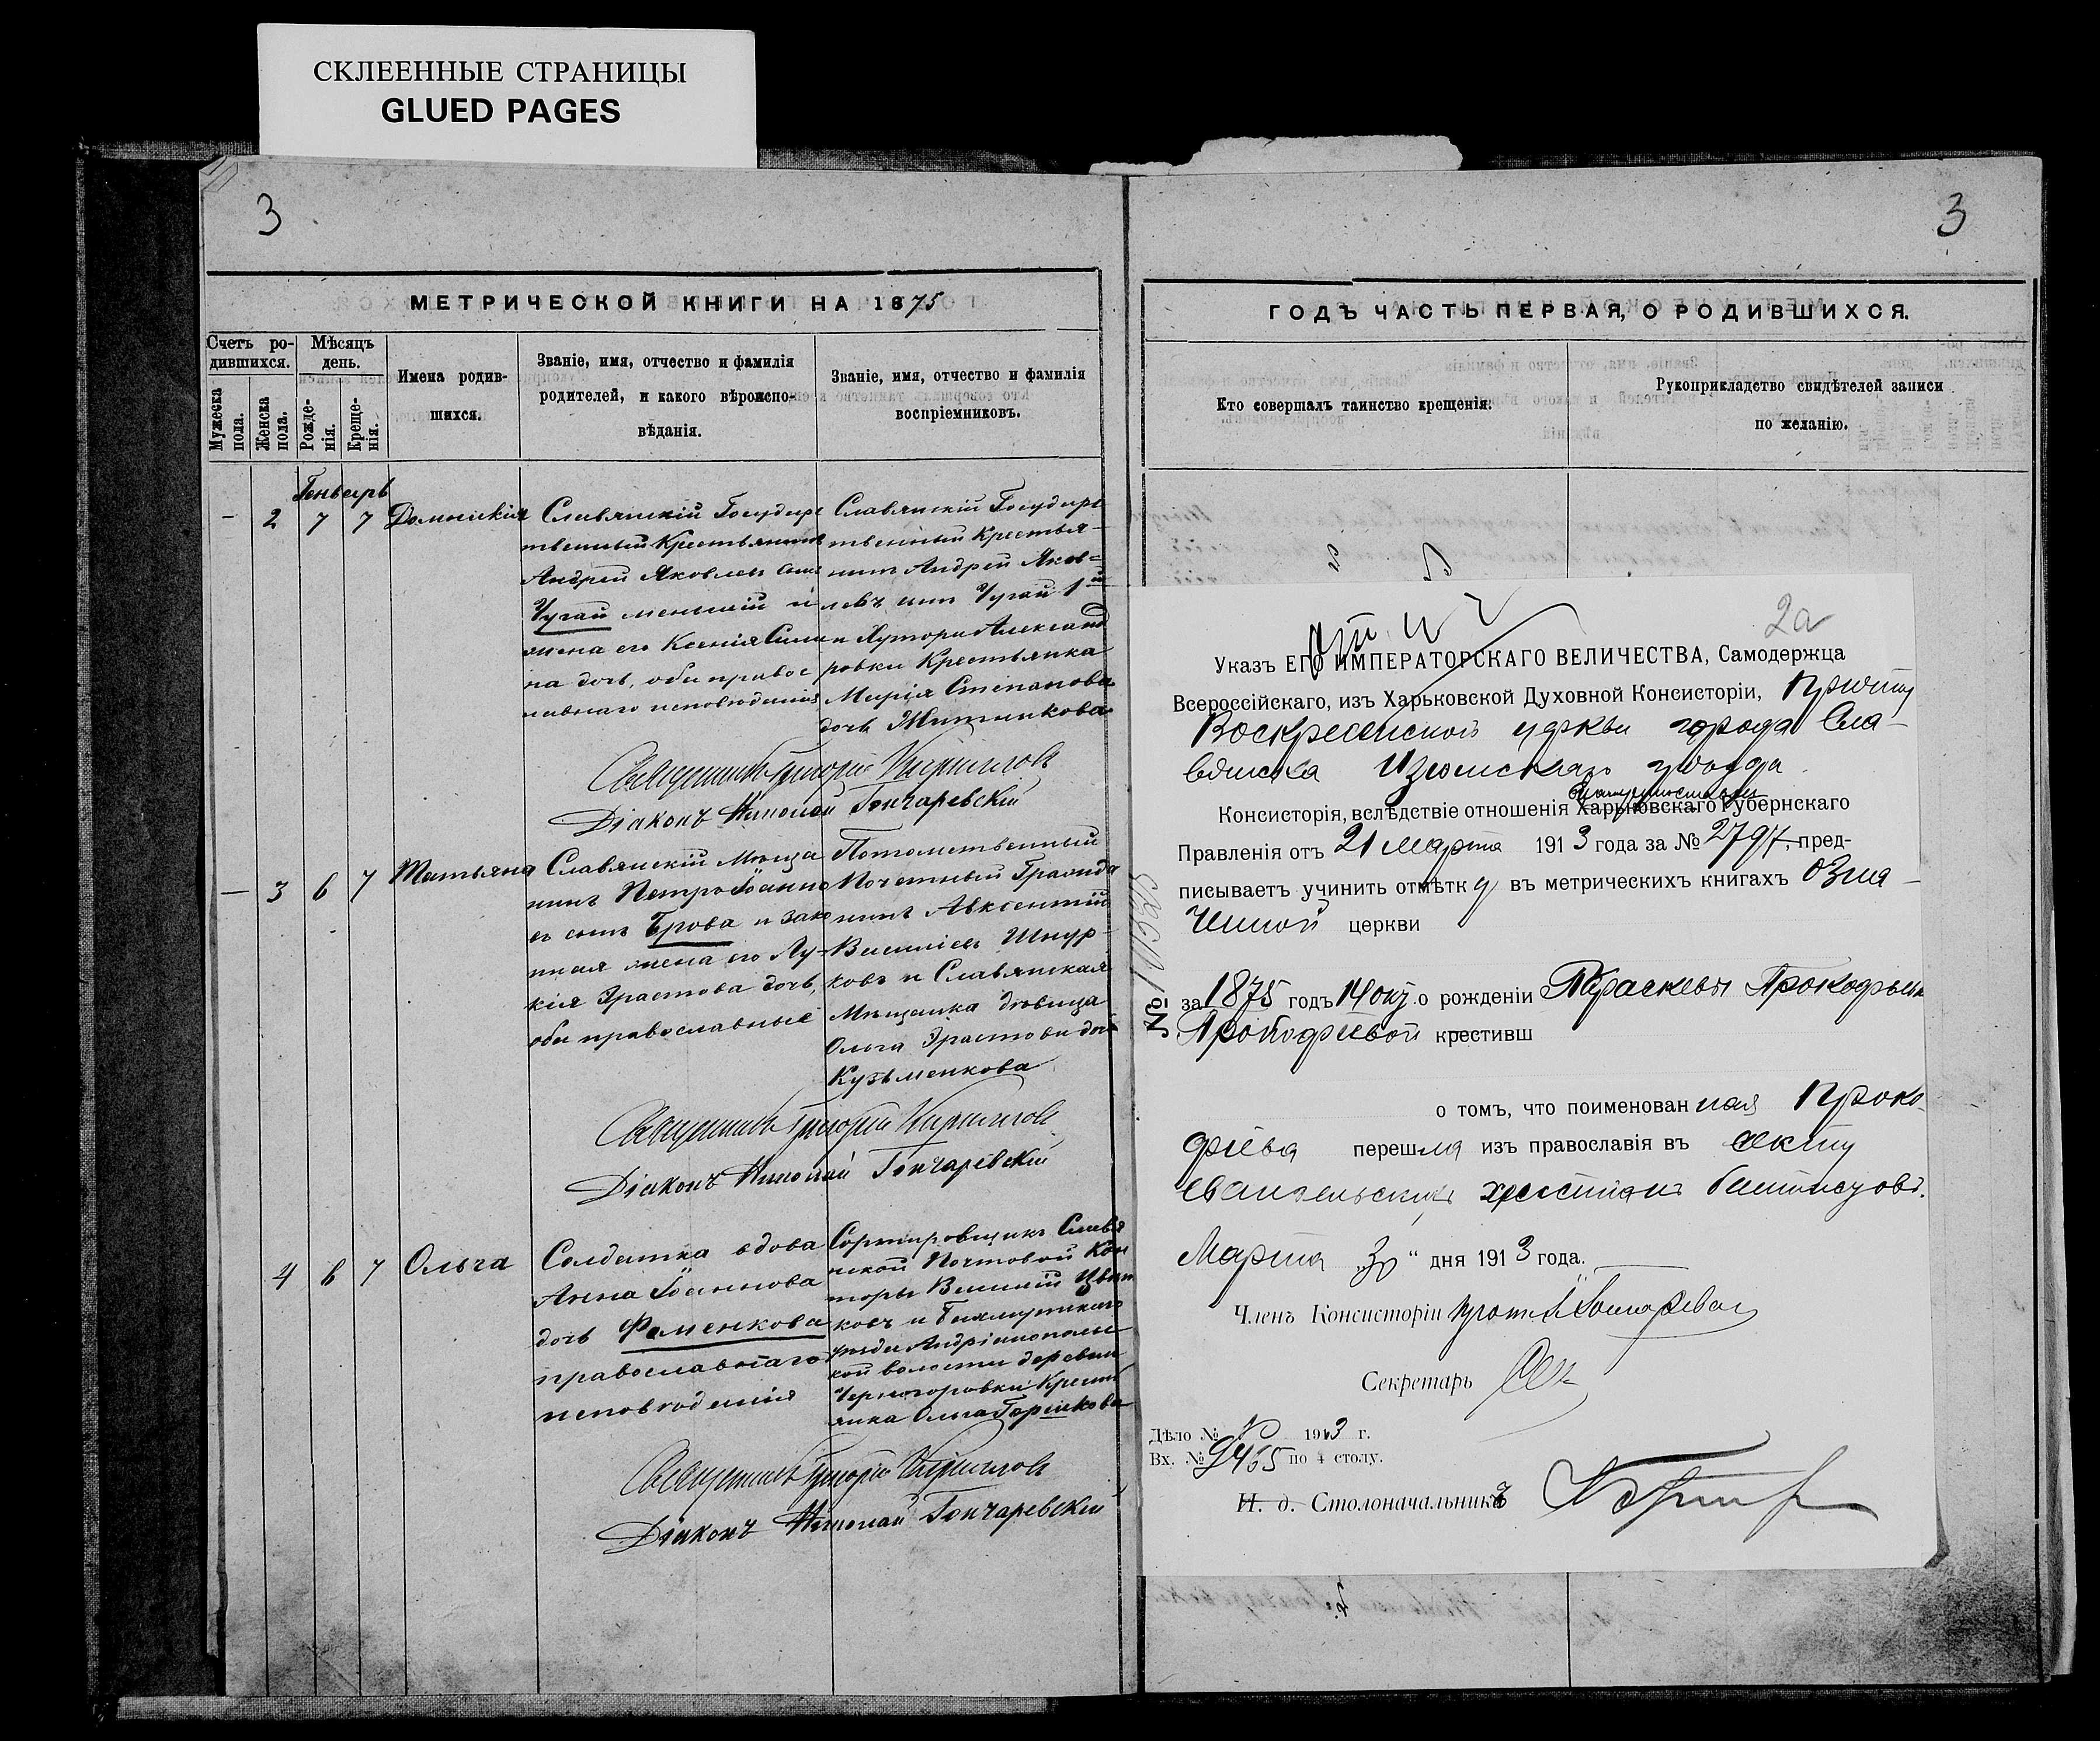 СКЛЕЕННЫЕ СТРАНИЦЫ
GLUED PAGES
3
МЕТРИЧЕСКОЙ КНИГИ НА 1875
Счетъ ро-
дившихся.
Мѣсяцъ
день.
Мужеска
пола.
Женска
пола.
Рожде-
нія.
Креще-
нія.
Имена родив-
шихся.
Званіе, имя, отчество и фамилія
родителей, и какого вѣроиспо-
вѣданія.
Званіе, имя, отчество и фамилія
воспріемниковъ.
Генварь
- 2 7 7 Домникія
Славянскій Государс
твенный Крестьянинъ
Андрей Яковлевъ сынъ
Чугай меньшій и
жена его Ксенія
на дочь, оба правос
лавнаго исповѣданія
Славянскій Государс
твенный Крестья-
нинъ Андрей Яков-
левъ сынъ Чугай 1й
и Хутора Александ
ровки Крестьянка
Марія Степанова
дочь Житникова
Священникъ Григорій Кириловъ
Діаконъ Николай Гончаревскій
- 3 6 7 Татьяна
Славянскій Мѣща
нинъ Петръ Іоанно
въ сынъ Брова и зако
нная жена его Лу-
кія Эрастова дочь,
оба православные
Потомственный
Почетный Гражда
нинъ Авксентій
Василіевъ Шнур-
ковъ и Славянская
Мѣщанка дѣвица
Ольга Эрастова доч
Кузьменкова
Священникъ Григорій Кириловъ
Діаконъ Николай Гончаревскій
4 6 7 Ольга
Солдатка вдова
Анна Іоаннова
дочь Фоменкова
православнаго
исповѣданія
Сортировщикъ Славя
нской Почтовой Кон
торы Василій
ковъ и Бахмутскаго
уѣзда Андріанополь
кой волости деревни
Черногоровки Крестья
янка Ольга Горшкова
Священникъ Григорій Кириловъ
Діаконъ Николай Гончаревскій
3
ГОДЪ ЧАСТЬ ПЕРВАЯ, О РОДИВШИХСЯ.
Кто совершалъ таинство крещенія.
Рукоприкладство свидѣтелей записи
по желанію.
2а
Указъ ЕГО ИМПЕРАТОРСКАГО ВЕЛИЧЕСТВА, Самодержца
Всероссійскаго, изъ Харьковской Духовной Консисторіи, Причту
Воскресенской церкви города Сла-
вянска Изюмскаго уѣзда.
Консисторія, вслѣдствіе отношенія Харьковскаго Губернскаго
Правленія отъ 21 Марта 1913 года за № 2797, пред-
писываетъ учинить отмѣтку въ метрическихъ книгахъ озна-
ченной церкви
№
за 1875 годъ 14 окт. о рожденіи Параскевы Прокофьевн
Прокофіевой крестивш
о томъ, что поименованная Проко-
фіева перешла изъ православія въ секту
евангельскихъ христіанъ баптистовъ.
Марта „30" дня 1913 года.
Членъ Консисторіи
Секретарь
Дѣло № 1913 г.
Вх. № 9465 по 4 столу.
И. д. Столоначальникъ